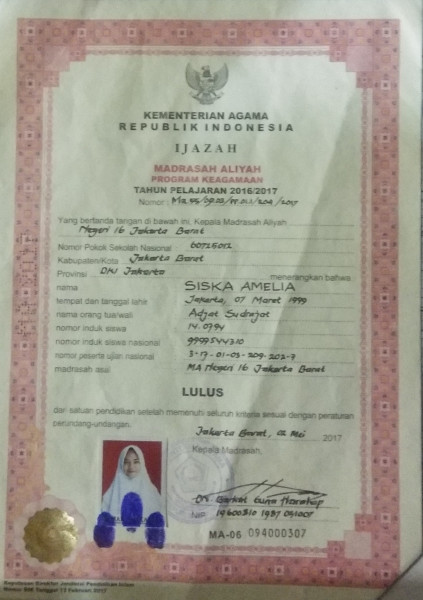 KEMENTERIAN AGAMA
REPUBLIK INDONESIA
IJAZAH
MADRASAH ALIYAH
PROGRAM KEAGAMAAN
TAHUN PELAJARAN 2016/2017
Nomor :
Yang bertanda tangan di bawah ini, Kepala Madrasah Aliyah
Negeri 16 Jakarta Barat
Nomor Pokok Sekolah Nasional 60725012
Kabupaten/Kota Jakarta Barat
Provinsi DKI Jakarta menerangkan bahwa
nama SISKA AMELIA
tempat dan tanggal lahir Jakarta, 07 Maret 1999
nama orang tua/wali Adjat Sudrajat
nomor induk siswa 14.0794
nomor induk siswa nasional 9999544310
nomor peserta ujian nasional 3-17-01-03-209-202-7
madrasah asal MA Negeri 16 Jakarta Barat
LULUS
dari satuan pendidikan setelah memenuhi seluruh kriteria sesuai dengan peraturan
perundang-undangan.
Jakarta Barat, 02 Mei 2017
Kepala Madrasah,
NIP
MA-06 094000307
Keputusan Direktur Jenderal Pendidikan Islam